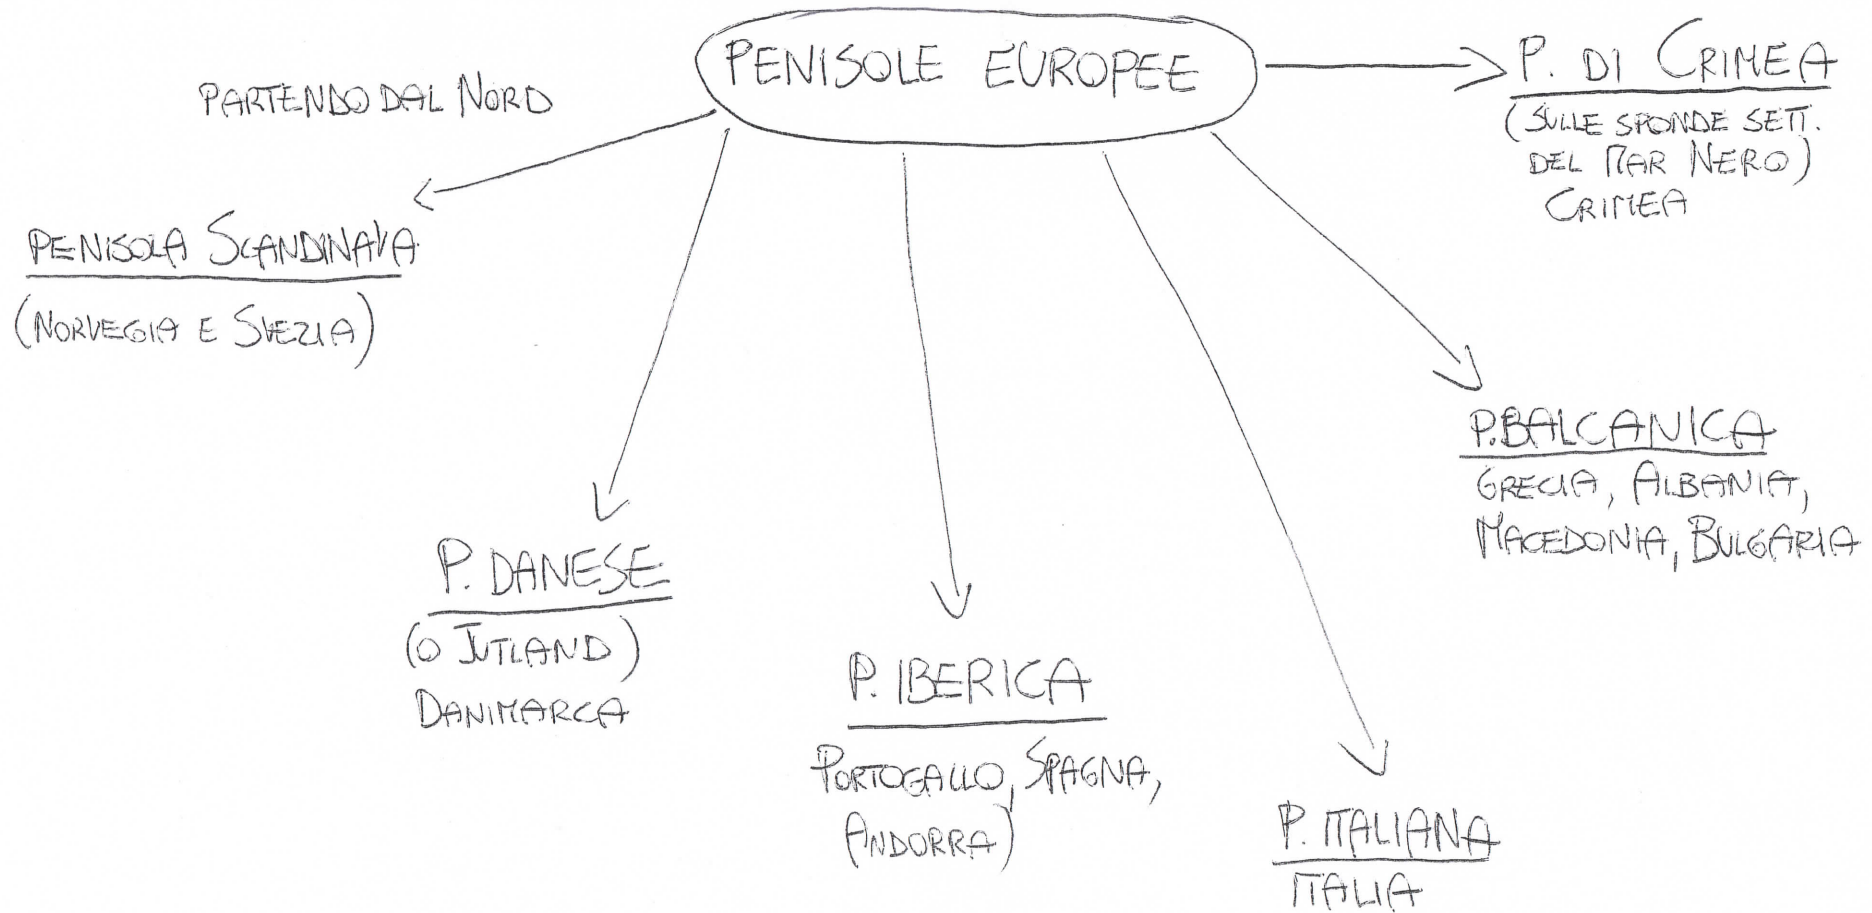 PENISOLE EUROPEE
PARTENDO DAL NORD
PENISOLA SCANDINAVA
(NORVEGIA E SVEZIA)
P. DANESE
(O JUTLAND)
DANIMARCA
P. IBERICA
PORTOGALLO, SPAGNA,
ANDORRA)
P. ITALIANA
ITALIA
P. BALCANICA
GRECIA, ALBANIA,
MACEDONIA, BULGARIA
P. DI CRIMEA
(SULLE SPONDE SETT.
DEL MAR NERO)
CRIMEA